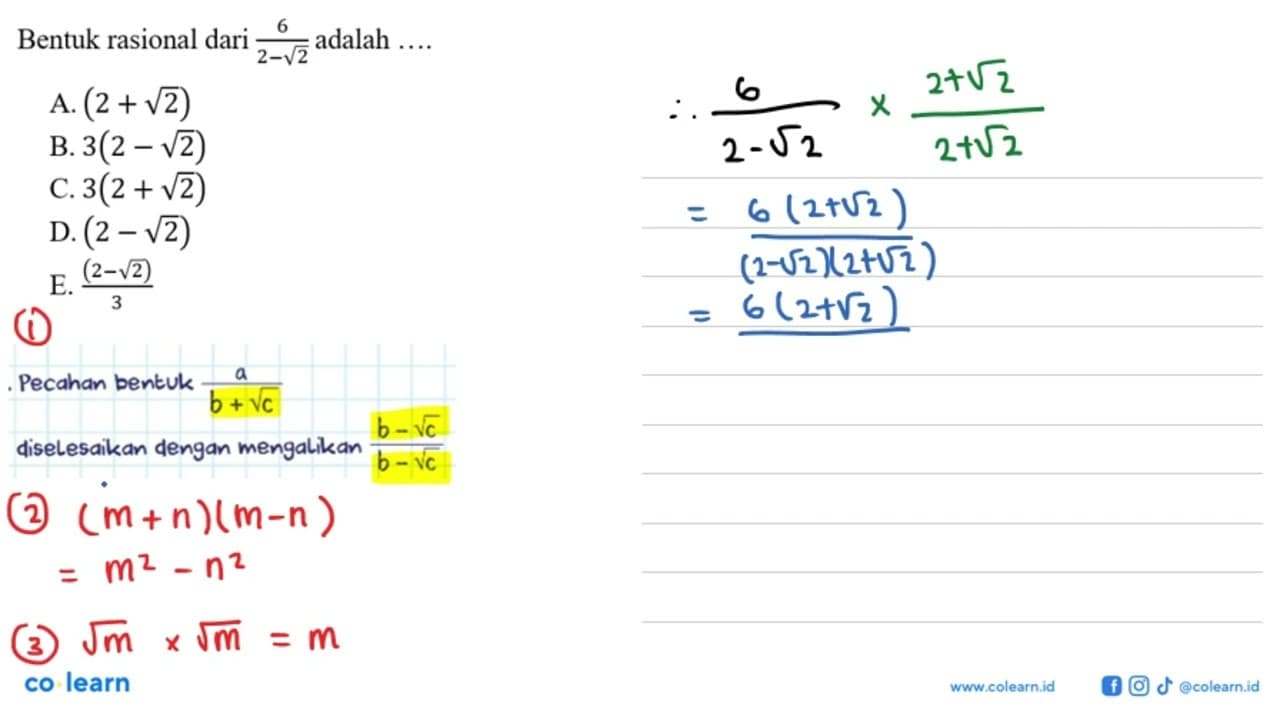 Bentuk rasional dari 6/(2−√2) adalah ….
A. (2 + √2)
B. 3(2 − √2)
C. 3(2 + √2)
D. (2 − √2)
E. (2−√2)/3
①
. Pecahan bentuk a/(b + √c)
diselesaikan dengan mengalikan (b − √c)/(b − √c)
② (m+n)(m-n)
= m² - n²
③ √m × √m = m
co learn
∴ 6/(2-√2) × (2+√2)/(2+√2)
= 6(2+√2)/((2-√2)(2+√2))
= 6(2+√2)
www.colearn.id
@colearn.id